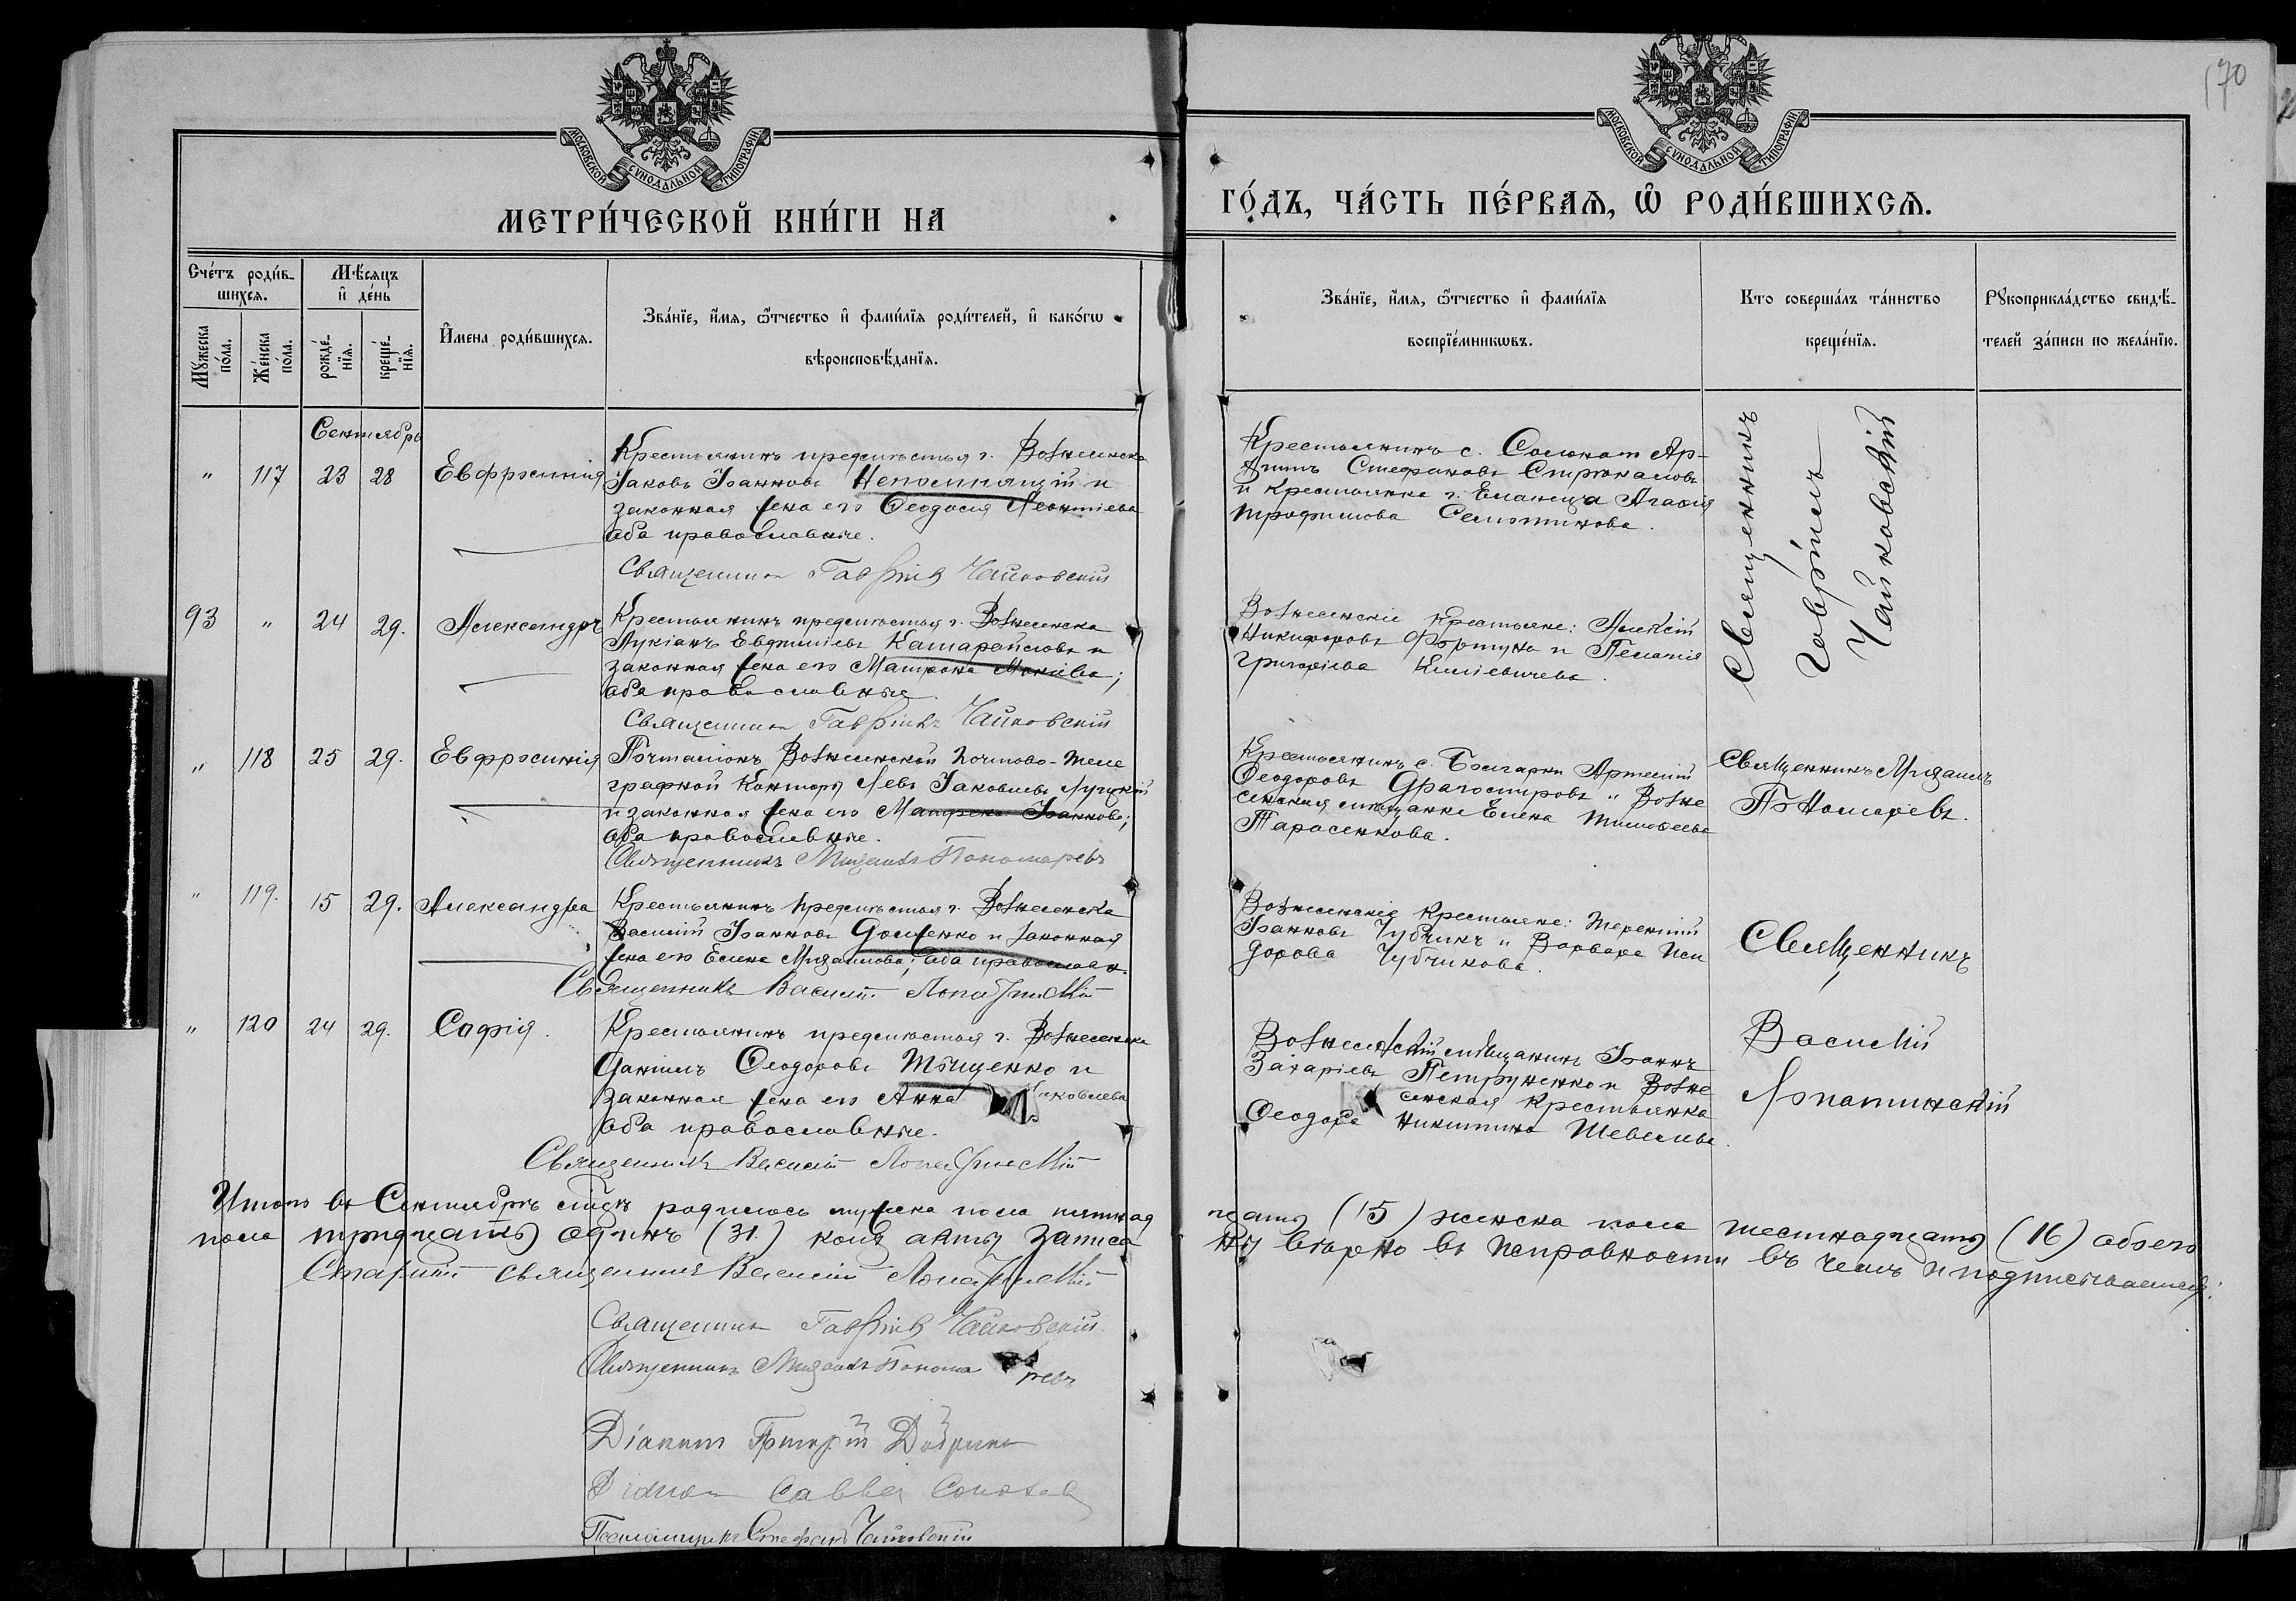 170
МОСКОВСКОЙ СУНОДАЛЬНОЙ ТИПОГРАФІИ
МОСКОВСКОЙ СУНОДАЛЬНОЙ ТИПОГРАФІИ
МЕТРИ́ЧЕСКОЙ КНИ́ГИ НА
ГО́ДЪ, ЧА́СТЬ ПЕ́РВАѦ, Ѡ҆ РОДИ́ВШИХСѦ.
Сче́тъ роди́в-
шихсѧ.
Мꙋ́жеска по́ла.
Же́нска по́ла.
Мѣ́сѧцъ
и҆ де́нь
рожде́-нїѧ.
креще́-нїѧ.
И҆мена роди́вшихсѧ.
Зва́нїе, и҆́мѧ, ѻ҆́тчество и҆ фами́лїѧ роди́телей, и҆ како́гѡ
вѣроисповѣ́данїѧ.
Зва́нїе, и҆́мѧ, ѻ҆́тчество и҆ фами́лїѧ
воспрїе́мникѡвъ.
Кто соверша́лъ та́инство
креще́нїѧ.
Рꙋкоприкла́дство свидѣ́-
телей за́писи по жела́нїю.
Сентябрь
" 117 23 28 Евфросинія
Крестьянинъ предмѣстья г. Вознесенска
Іаковъ Іоанновъ Непомнящій и
законная жена его Ѳеодосія Леонтіева
оба православные.
Священникъ Гавріилъ Чайковскій
Крестьянинъ с.
Стефановъ
и крестьянка г. Еланеца Агафія
Трофимова
Священникъ
Гавріилъ
Чайковскій
93 " 24 29. Александръ
Крестьянинъ предмѣстья г. Вознесенска
Лукіанъ Евѳиміевъ и
законная жена его Матрона
оба православные
Священникъ Гавріилъ Чайковскій
Вознесенскіе крестьяне: Алексій
Никифоровъ Фортуна и Пелагія
Григоріева
" 118 25 29. Евфросинія
Почталіонъ Вознесенской Почтово-теле
графной Конторы Левъ Іаковлевъ Луцкій
и законная жена его Іоаннова;
оба православные.
Священникъ Михаилъ Пономаревъ
Крестьянинъ с. Болгарки Артемій
Ѳеодоровъ Драгомировъ и Возне
сенская мѣщанка Елена Тимоѳеева
Тарасенкова.
Священникъ Михаилъ
Пономаревъ.
" 119. 15 29. Александра
Крестьянинъ предмѣстья г. Вознесенска
Василій Іоанновъ Доценко и законная
жена его Елена Михаилова; оба православн.
Священникъ Василій Лопатинскій
Вознесенскіе крестьяне: Терентій
Іоанновъ Чубчикъ и Варвара Иси
дорова Чубчикова.
Священникъ
" 120 24 29. Софія.
Крестьянинъ предмѣстья г. Вознесенска
Даніилъ Ѳеодоровъ Тищенко и
законная жена его Анна Іаковлева
оба православные.
Священникъ Василій Лопатинскій
Вознесенскій мѣщанинъ Іоаннъ
Захаріевъ Петруненко и Возне
сенская крестьянка
Ѳеодора Никитина
Василій
Лопатинскій
Итого въ Сентябрѣ мѣсяцѣ родилось мужска пола пятнад
цать (15) женска пола шестнадцать (16) обоего
пола тридцать одинъ (31.) коихъ акты записа
ны вѣрно въ исправности въ чемъ и подписываемся:
Старшій священникъ Василій Лопатинскій
Священникъ Гавріилъ Чайковскій
Священникъ Михаилъ Пономаревъ
Діаконъ Григорій
Діаконъ Савва
Псаломщикъ Стефанъ Чайковскій